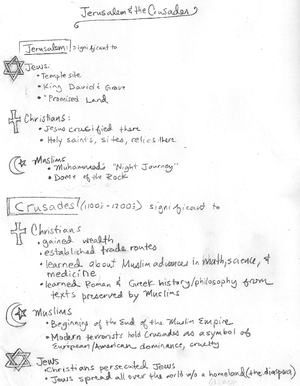 Jerusalem & the Crusades
Jerusalem: significant to
Jews:
• Temple site
• King David's Grave
• "Promised Land
Christians:
• Jesus crucified there
• Holy saints, sites, relics there
Muslims
• Muhammad's "Night Journey"
• Dome of the Rock
Crusades (1100s-1200s) significant to
Christians
• gained wealth
• established trade routes
• learned about Muslim advances in math, science, &
medicine
• learned Roman & Greek history/philosophy from
texts preserved by Muslims
Muslims
• Beginning of the End of the Muslim Empire
• Modern terrorists hold Crusades as a symbol of
European/American dominance, cruelty
Jews
• Christians persecuted Jews
• Jews spread all over the world w/o a homeland (the diaspora)